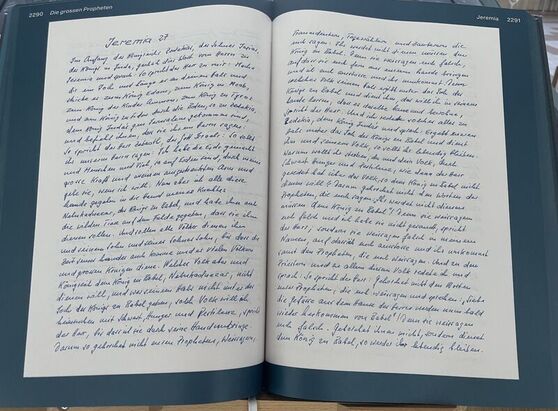 2290 Die grossen Propheten
Jeremia 27
Im Anfang des Königreichs Zedekias, des Sohnes Josias,
des Königs in Juda, geschah dies Wort vom Herrn zu
Jeremia und sprach: So spricht der Herr zu mir: Mache
dir ein Joch und hänge es an deinen Hals und
schicke es zum König Edoms, zum König in Moab,
zum König der Kinder Ammon, zum König zu Tyrus,
und zum König zu Sidon durch die Boten, so zu Zedekia,
dem König Judas gen Jerusalem gekommen sind,
und befiehl ihnen, dass sie ihren Herren sagen:
So spricht der Herr Zebaoth, der Gott Israels: So sollt
ihr euren Herren sagen: Ich habe die Erde gemacht
und Menschen und Vieh, so auf Erden sind, durch meine
grosse Kraft und meinen ausgestreckten Arm und
gebe sie, wem ich will. Nun aber ich alle diese
Lande gegeben in die Hand meines Knechtes
Nebukadnezar, des Königs zu Babel, und habe ihm auch
die wilden Tiere auf dem Felde gegeben, dass sie ihm
dienen sollen. Und sollen alle Völker dienen ihm
und seinem Sohn und seines Sohnes Sohn, bis dass die
Zeit seines Landes auch komme und es vielen Völkern
und grossen Königen diene. Welches Volk aber und
Königreich dem König zu Babel, Nebukadnezar, nicht
dienen will, und wer seinen Hals nicht unter das
Joch des Königs zu Babel geben, solch Volk will ich
heimsuchen mit Schwert, Hunger und Pestilenz, spricht
der Herr, bis dass ich sie durch seine Hand umbringe.
Darum so gehorchet nicht euren Propheten, Weissagern,
Jeremia 2291
Traumdeutern, Tagewählern und Zauberern, die
euch sagen: Ihr werdet nicht dienen müssen dem
König zu Babel. Denn sie weissagen euch falsch,
auf dass sie euch fern aus eurem Lande bringen
und ich euch ausstosse und ihr umkommet. Denn
welches Volk seinen Hals ergibt unter das Joch des
Königs zu Babel und dient ihm, das will ich in seinem
Lande lassen, dass es dasselbe baue und bewohne,
spricht der Herr. Und ich redete solches alles zu
Zedekia, dem König Judas und sprach: Ergebt euren
Hals unter das Joch des Königs zu Babel und dient
ihm und seinem Volk, so sollt ihr lebendig bleiben.
Warum wollt ihr sterben, du und dein Volk, durch
Schwert, Hunger und Pestilenz, wie denn der Herr
geredet hat über das Volk, so dem König zu Babel nicht
dienen will? Darum gehorchet nicht den Worten der
Propheten, die euch sagen: „Ihr werdet nicht dienen
müssen dem König zu Babel!“ Denn sie weissagen
euch falsch und ich habe sie nicht gesandt, spricht
der Herr, sondern sie weissagen falsch in meinem
Namen, auf dass ich euch ausstosse und ihr umkommt
samt den Propheten, die euch weissagen. Und zu den
Priestern und zu allem diesem Volk redete ich und
sprach: So spricht der Herr: Gehorchet nicht den Worten
eurer Propheten, die euch weissagen und sprechen: „Siehe,
die Gefässe aus dem Hause des Herrn werden nun bald
wieder herkommen von Babel!“ Denn sie weissagen
euch falsch. Gehorchet ihnen nicht, sondern dienet
dem König zu Babel, so werdet ihr lebendig bleiben.